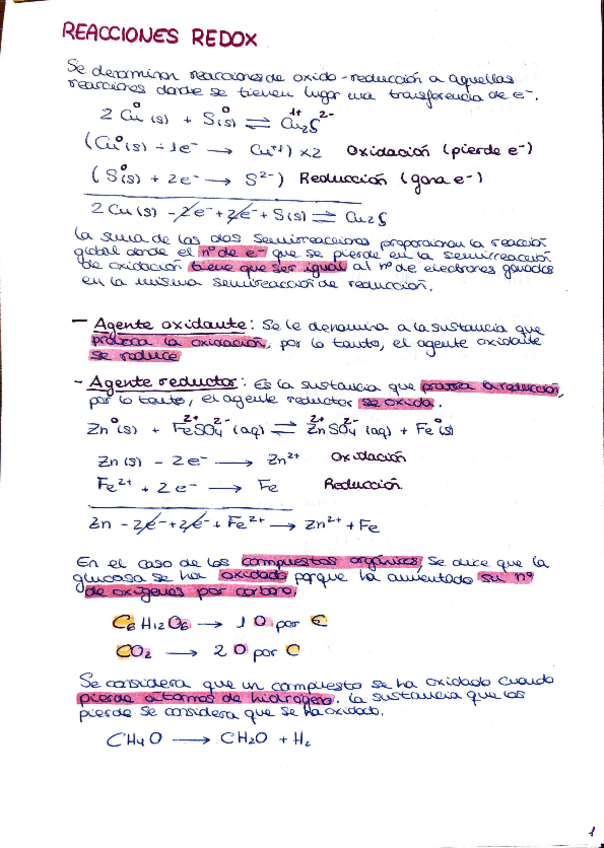 REACCIONES REDOX
Se denominan reacciones de oxido-reducción a aquellas
reacciones donde se tienen lugar una transferencia de e⁻.
2 Cu⁰(s) + S⁰(s) ⇌ Cu₂¹⁺S²⁻
(Cu⁰(s) - 1e⁻ → Cu⁺¹) x2 Oxidación (pierde e⁻)
(S⁰(s) + 2e⁻ → S²⁻) Reducción (gana e⁻)
2 Cu(s) - 2e⁻ + 2e⁻ + S(s) ⇌ Cu₂S
La suma de las dos semirreacciones proporcionan la reacción
global donde el nº de e⁻ que se pierde en la semirreacción
de oxidación tiene que ser igual al nº de electrones ganados
en la misma semireacción de reducción.
- Agente oxidante: Se le denomina a la sustancia que
provoca la oxidación, por lo tanto, el agente oxidante
se reduce
- Agente reductor: Es la sustancia que provoca la reducción,
por lo tanto, el agente reductor se oxida.
Zn⁰(s) + Fe²⁺SO₄²⁻(aq) ⇌ Zn²⁺SO₄²⁻(aq) + Fe⁰(s)
Zn(s) - 2e⁻ → Zn²⁺ Oxidación
Fe²⁺ + 2e⁻ → Fe Reducción
Zn - 2e⁻ + 2e⁻ + Fe²⁺ → Zn²⁺ + Fe
En el caso de los compuestos orgánicos, se dice que la
glucosa se ha oxidado porque ha aumentado su nº
de oxígenos por carbono.
C₆H₁₂O₆ → 1 O por C
CO₂ → 2 O por C
Se considera que un compuesto se ha oxidado cuando
pierde átomos de hidrógeno. La sustancia que los
pierde se considera que se ha oxidado.
CH₄O → CH₂O + H₂
1